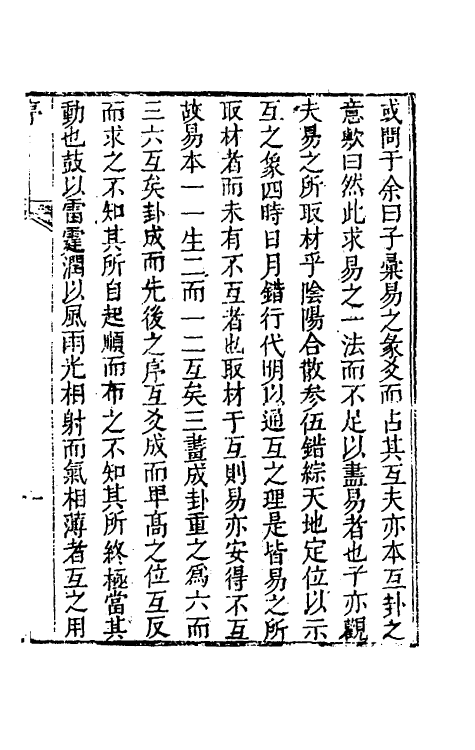 或問于余曰子彙易之彖爻而占其互夫亦本互卦之
意歟曰然此求易之一法而不足以盡易者也子亦觀
夫易之所取材乎陰陽合散參伍錯綜天地定位以示
互之象四時日月錯行代明以通互之理是皆易之所
取材者而未有不互者也取材于互則易亦安得不互
故易本一一生二而一二互矣三畫成卦重之爲六而
三六互矣卦成而先後之序互爻成而卑高之位互反
而求之不知其所自起順而布之不知其所終極當其
動也鼓以雷霆潤以風雨光相射而氣相薄者互之用
序
一